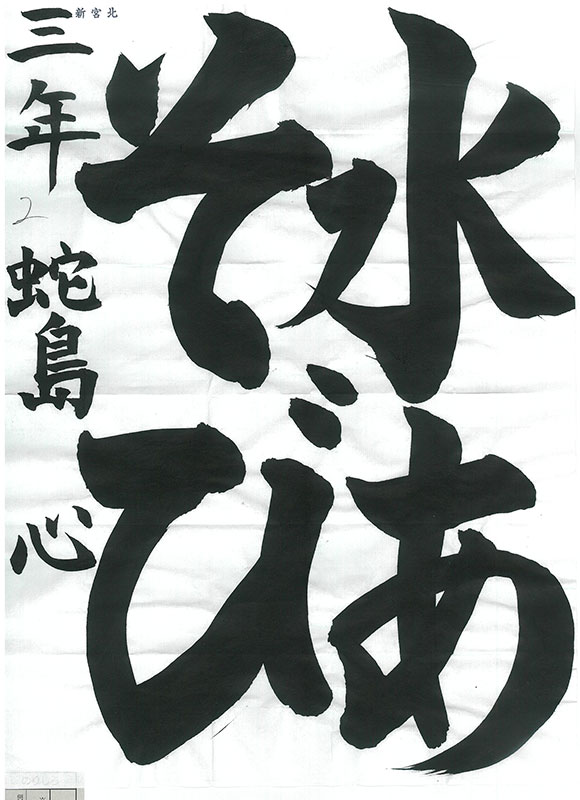 水あ
そび
三年 蛇島 心
2
北宮新